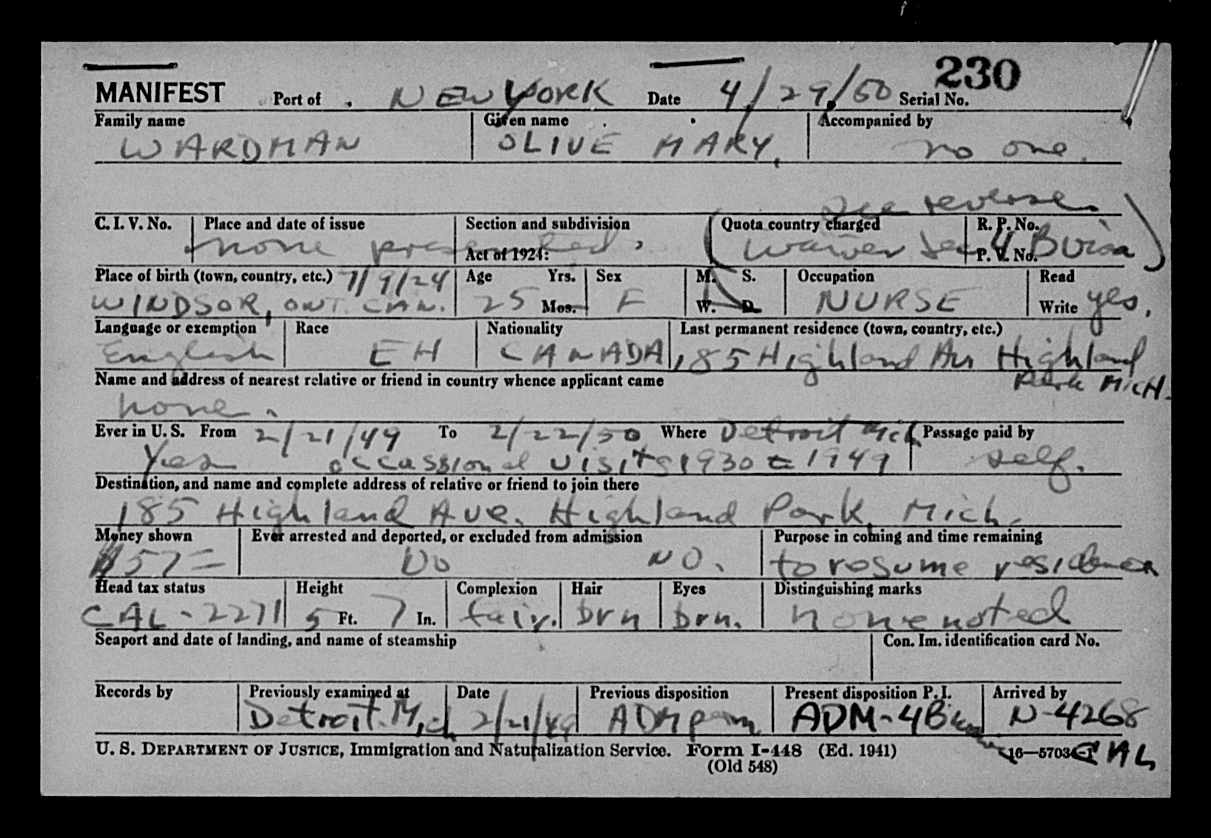 230
MANIFEST Port of . NEW YORK Date 4/29/50 Serial No.
Family name Given name Accompanied by
WARDMAN OLIVE MARY, no one.
see reverse.
C. I. V. No. Place and date of issue Section and subdivision Quota country charged R. P. No.
none presented. Act of 1924: (waiver sec 4 P. V. No. )
Place of birth (town, country, etc.) 7/9/24 Age Yrs. Sex M. S. Occupation Read
WINDSOR, ONT. CAN. 25 Mos. F W. D. NURSE Write yes.
Language or exemption Race Nationality Last permanent residence (town, country, etc.)
English EH CANADA 185 Highland Av Highland
Park MICH.
Name and address of nearest relative or friend in country whence applicant came
none.
Ever in U. S. From 2/21/49 To 2/22/50 Where Detroit Mich Passage paid by
Yes occassional visits 1930 to 1949 self.
Destination, and name and complete address of relative or friend to join there
185 Highland Ave. Highland Park, Mich.
Money shown Ever arrested and deported, or excluded from admission Purpose in coming and time remaining
$57= No NO. to resume residence
Head tax status Height Complexion Hair Eyes Distinguishing marks
CAL-2271 5 Ft. 7 In. fair. brn brn. none noted
Seaport and date of landing, and name of steamship Con. Im. identification card No.
Records by Previously examined at Date Previous disposition Present disposition P. I. Arrived by
Detroit. Mich 2/21/49 ADM perm ADM-4B N-4268
U. S. DEPARTMENT OF JUSTICE, Immigration and Naturalization Service. Form I-448 (Ed. 1941) 16—5703 CAL
(Old 548)